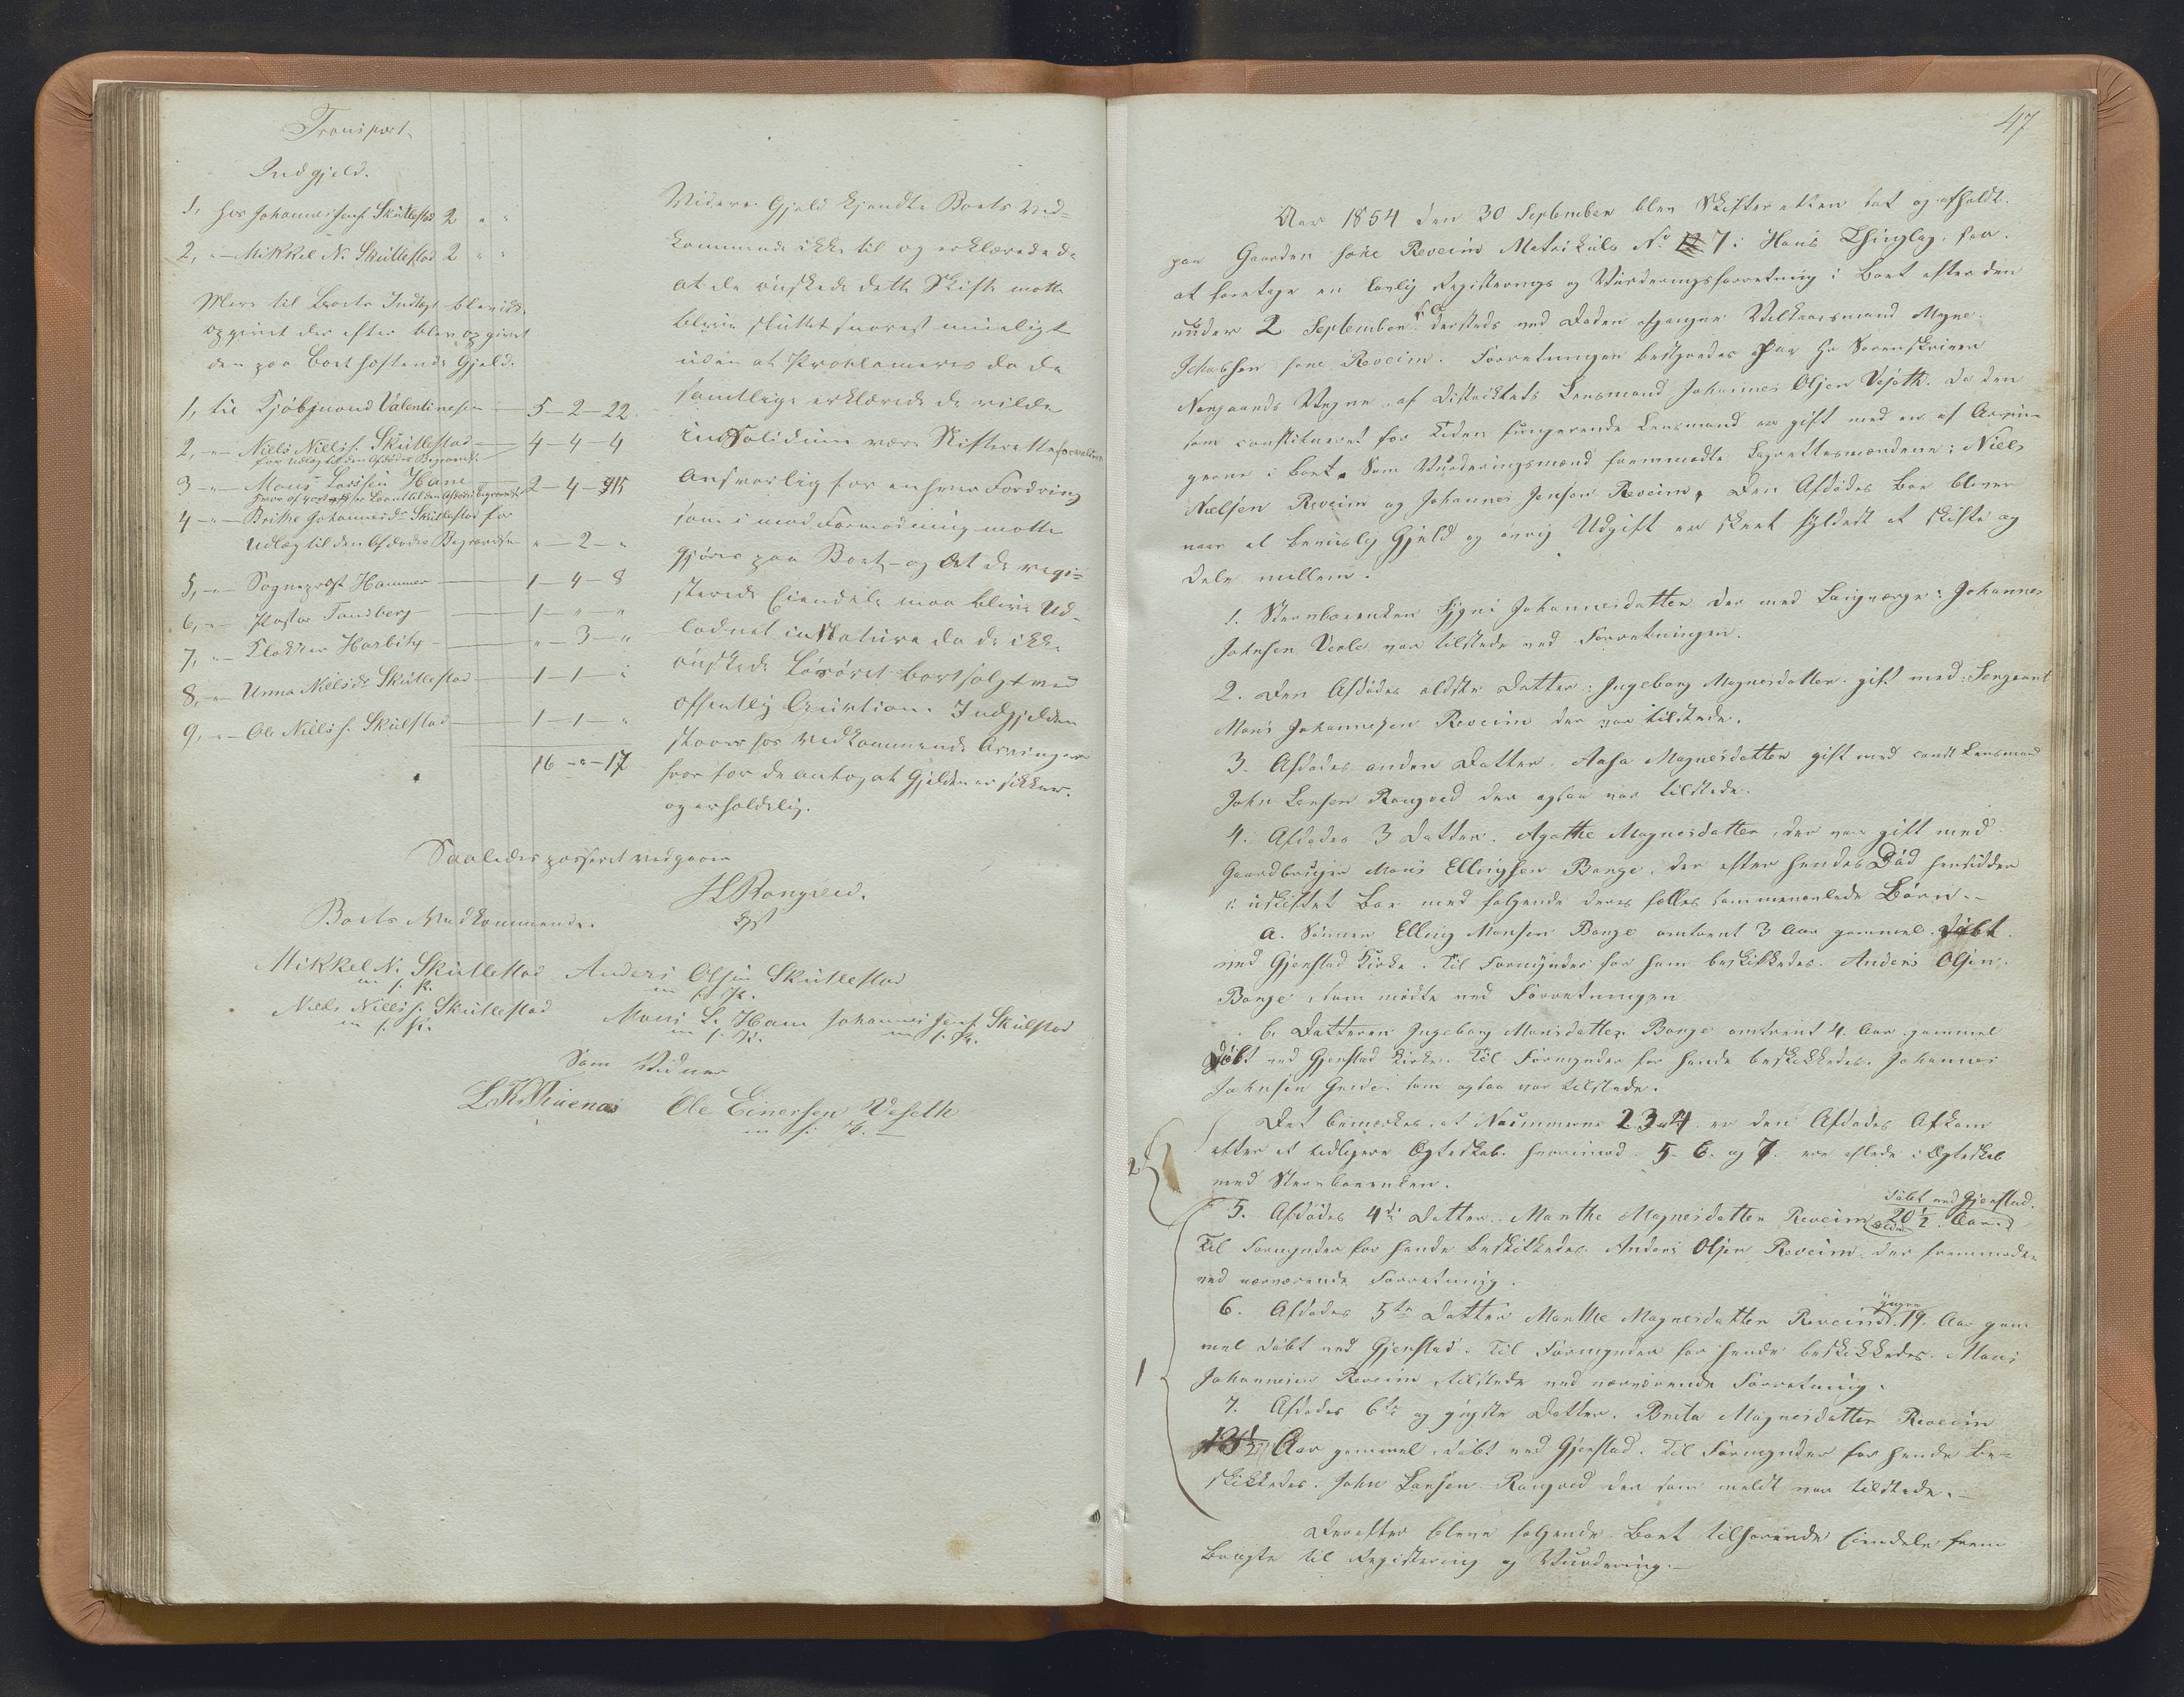 Transport
Indgjeld.
1, hos Johannes Jensf. Skütlestad 2 " "
2, "– Mikkel N. Skütlestad 2 " "
Mere til Boets Indtægt blev ikke
opgivet der efter blev opgivet
den paa Boet heftende Gjeld.
1, til Kjøbmand Valentinesen — 5–2–22.
2, –"– Niels Nielsf. Skütlestad — 4–4–4
for Udlæg til den Afdødes Begravelse
3 –"– Mons Larssen Hane — 2–4–15
4 –"– Brithe Johannesdr Skütlestad for
Udlæg til den Afdødes Begravelse " –2– "
5, –"– Sogneprest Hammer — 1–4–8
6, –"– Pastor Tandberg — 1–"–"
7, –"– Klokker Harbitz — "–3–"
8, –"– Anna Nielsdr Skütlestad — 1–1–"
9, –"– Ole Nielsf. Skülstad — 1–1–"
16–"–17
Videre Gjeld kjendte Boets Ved=
kommende ikke til og erklærede de
at de ønskede dette Skifte motte
blive sluttet snarest mueligt
uden at Proklameres da de
samtlige erklærede de vilde
in Solidum være Skifteretteforvalteren
Ansvarlig for enhver Fordring
som i mod Formodning motte
gjøres paa Boet – og At de regi=
sterede Eiendele maa blive Ud=
lodnet in Natura da de ikke
ønskede Løsøret bortsolgt ved
offentlig Auction. Indgjelden
staaer hos Vedkommende Arvinger
hvor for de antog at Gjelden er sikker.
og erholdelig.
Saaledes passeret vedgaaer
JL Rongved.
Kst
Boets Vedkommende.
Mikkel N. Skütlestad Anders Olsen Skütlestad
m. f. P. m. f. P.
Niels Nielsf. Skütlestad Mons L. Hane Johannes Jensf. Skülstad
m. f. P. m. f. P. m. f. P.
Som Vidner
L. K. Vinenes Ole Einersen Veseth
m. f. P. —
47
Aar 1854 den 30 September blev Skifteretten sat og afholdt.
paa Gaarden søre Reveim Matrikuls No 7 i Haus Thinglag, for
at foretage en lovlig Registerings og Vürderingsforretning i Boet efter den
ünder 2 September d. A. dersteds ved Døden afgangne Vilkaarsmand Magne
Jakobsen søre Reveim. Forretningen bestyredes paa Hr Sorenskriver
Norgaards Vegne af Distriktets Lensmand Johannes Olsen Veseth. da den
som constitueret for Tiden fungerende Lensmand er gift med en af Arvin=
gerne i Boet. Som Vürderingsmænd fremmødte Lagrettesmændene: Niels
Nielsen Reveim og Johannes Jensen Reveim. Den Afdødes Boe bliver
naar al beviislig Gjeld og øvrig Udgift er skeet Fyldest at skifte og
dele mellem.
1. Stervboenken Sygni Johannesdatter der med Laugværge: Johannes
Johnsen Veole var tilstede ved Forretningen.
2. Den Afdødes ældste Datter: Ingeborg Magnesdatter. gift med: Sergeant
Mons Johannesen Reveim der var tilstede.
3. Afdødes anden Datter. Aasa Magnesdatter gift med const Lensmand
John Larsen Rongved der ogsaa var tilstede.
4. Afdødes 3 Datter. Agathe Magnesdatter, der var gift med
Gaardbruger Mons Ellingsen Bange, der efter hendes Død hensidder
i uskiftet Boe med følgende deres fælles sammenavlede Børn.–
a. Sønnen Elling Monsen Bange omtrent 3 Aar gammel. Døbt
ved Gjerstad Kirke. Til Formynder for ham beskikkedes. Anders Olsen
Bange, som mødte ved Forretningen
b. Datteren Ingeborg Monsdatter Bange omtrent 4. Aar gammel
Døbt ved Gjerstad Kirke. Til Formynder for hende beskikkedes. Johannes
Johnsen Grede. som ogsaa var tilstede.
Det bemærkes, at Nummerne 2. 3. 4 er den Afdødes Afkom
efter et tidligere Ægteskab. hvorimod. 5. 6. og 7. ere avlede i Ægteskab
med Stervboenken.
2
5. Afdødes 4de Datter. Marthe Magnesdatter Reveim ældre 20 1/2 Aar døbt ved Gjerstad.
Til Formynder for hende beskikkedes. Anders Olsen Reveim. der fremmødte
ved nærværende Forretning.
6. Afdødes 5te Datter Marthe Magnesdatter Reveim yngre 19. Aar gam
mel døbt ved Gjerstad. Til Formynder for hende beskikkedes. Mons
Johannesen Reveim, tilstede ved nærværende Forretning.
1
7. Afdødes 6te og yngste Datter. Brita Magnesdatter Reveim
13 1/2 Aar gammel, døbt ved Gjerstad. Til Formynder for hende be=
skikkedes. John Larsen Rongved der som meldt var tilstede.–
Derefter bleve følgende Boet tilhørende Eiendele frem
bragte til Registering og Vurdering.–